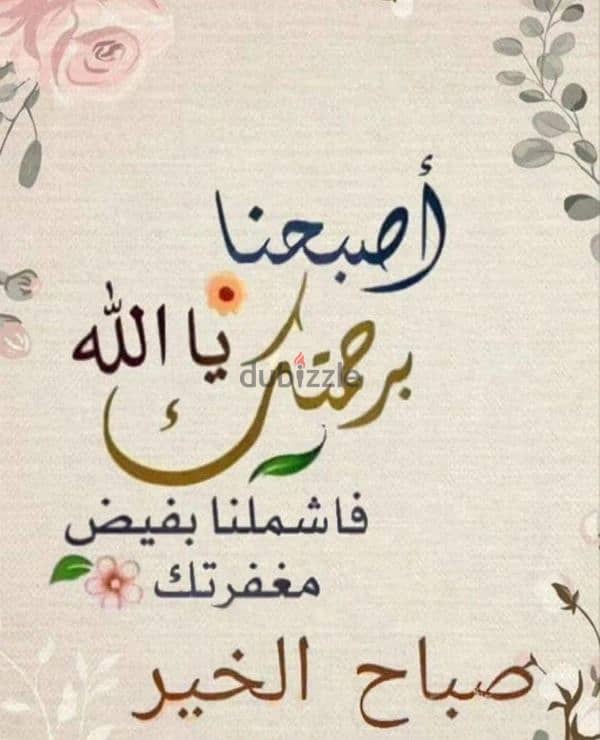 أصبحنا
برحمتك يا الله
dubizzle
فاشملنا بفيض
مغفرتك
صباح الخير